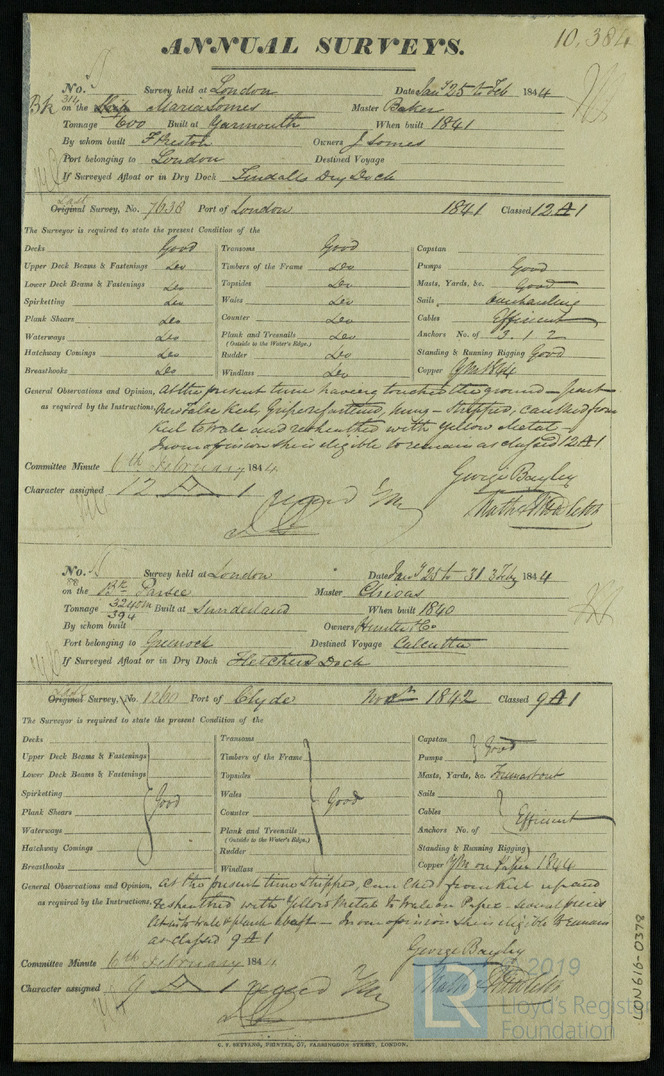 10.384
ANNUAL SURVEYS.
No. Survey held at London Date Jany 25 to Feb 1844
Bk 314 on the Ship Maria Somes Master Baker
Tonnage 600 Built at Yarmouth When built 1841
By whom built F Preston Owners J Somes
Port belonging to London Destined Voyage
If Surveyed Afloat or in Dry Dock Tindalls Dry Dock
Last
Original Survey, No. 7638 Port of London 1841 Classed 12 A 1
The Surveyor is required to state the present Condition of the
Decks Good Transoms Good Capstan
Upper Deck Beams & Fastenings Do Timbers of the Frame Do Pumps Good
Lower Deck Beams & Fastenings Do Topsides Do Masts, Yards, &c. Good
Spirketting Do Wales Do Sails overhauling
Plank Shears Do Counter Do Cables Efficient
Waterways Do Plank and Treenails Do Anchors No. of 3 1 2
(Outside to the Water's Edge.)
Hatchway Comings Do Rudder Do Standing & Running Rigging Good
Breasthooks Do Windlass Do Copper
General Observations and Opinion, At the present time having touched the ground - part
as required by the Instructions. new False Keel, Gripe refastened, hung - Stripped, caulked from
Keel to Wale and resheathed with Yellow Metal -
In our opinion she is eligible to remain as classed 12 A 1
Committee Minute 6th February 1844
George Bayley
Character assigned 12 A 1
No. Survey held at London Date Jany 25 to 31 3 Feby 1844
88 on the Bk Parsee Master Chivas
Tonnage 394 Built at Sunderland When built 1840
By whom built Owners Hunter & Co
Port belonging to Greenock Destined Voyage Calcutta
If Surveyed Afloat or in Dry Dock Fletchers Dock
Last
Original Survey, No. 1260 Port of Clyde 1842 Classed 9 A 1
The Surveyor is required to state the present Condition of the
Decks Transoms Capstan
Upper Deck Beams & Fastenings Timbers of the Frame Pumps Good
Lower Deck Beams & Fastenings Topsides Masts, Yards, &c.
Spirketting Good Wales Good Sails
Plank Shears Counter Cables Efficient
Waterways Plank and Treenails Anchors No. of
(Outside to the Water's Edge.)
Hatchway Comings Rudder Standing & Running Rigging
Breasthooks Windlass Copper YM on Paper 1844
General Observations and Opinion, At the present time stripped, Caulked from Keel upward
as required by the Instructions. Resheathed with Yellow Metal to Wale on Paper - several pieces
let into wale & plank abaft - In our opinion she is eligible to remain
as classed 9 A 1
George Bayley
Committee Minute 6th February 1844
Character assigned 9 A 1
C. F. SEYFANG, PRINTER, 57, FARRINGDON STREET, LONDON.
LON616-0378
LR
© 2019
Lloyd's Register
Foundation